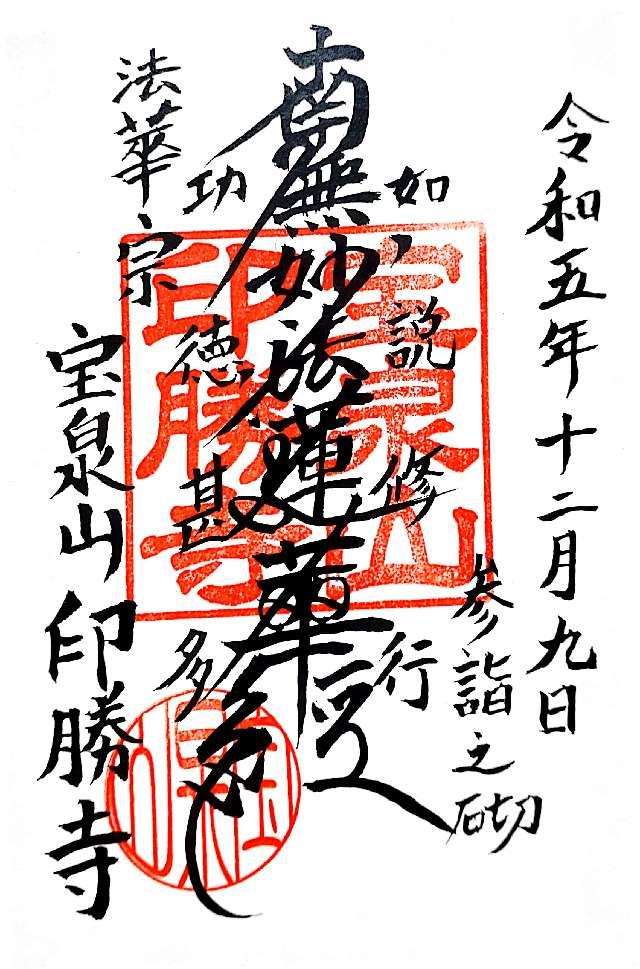 令和五年十二月九日
参詣之砌
如説修行
南無妙法蓮華経
功徳甚多
法華宗
宝泉山 印勝寺
宝泉山
印勝寺